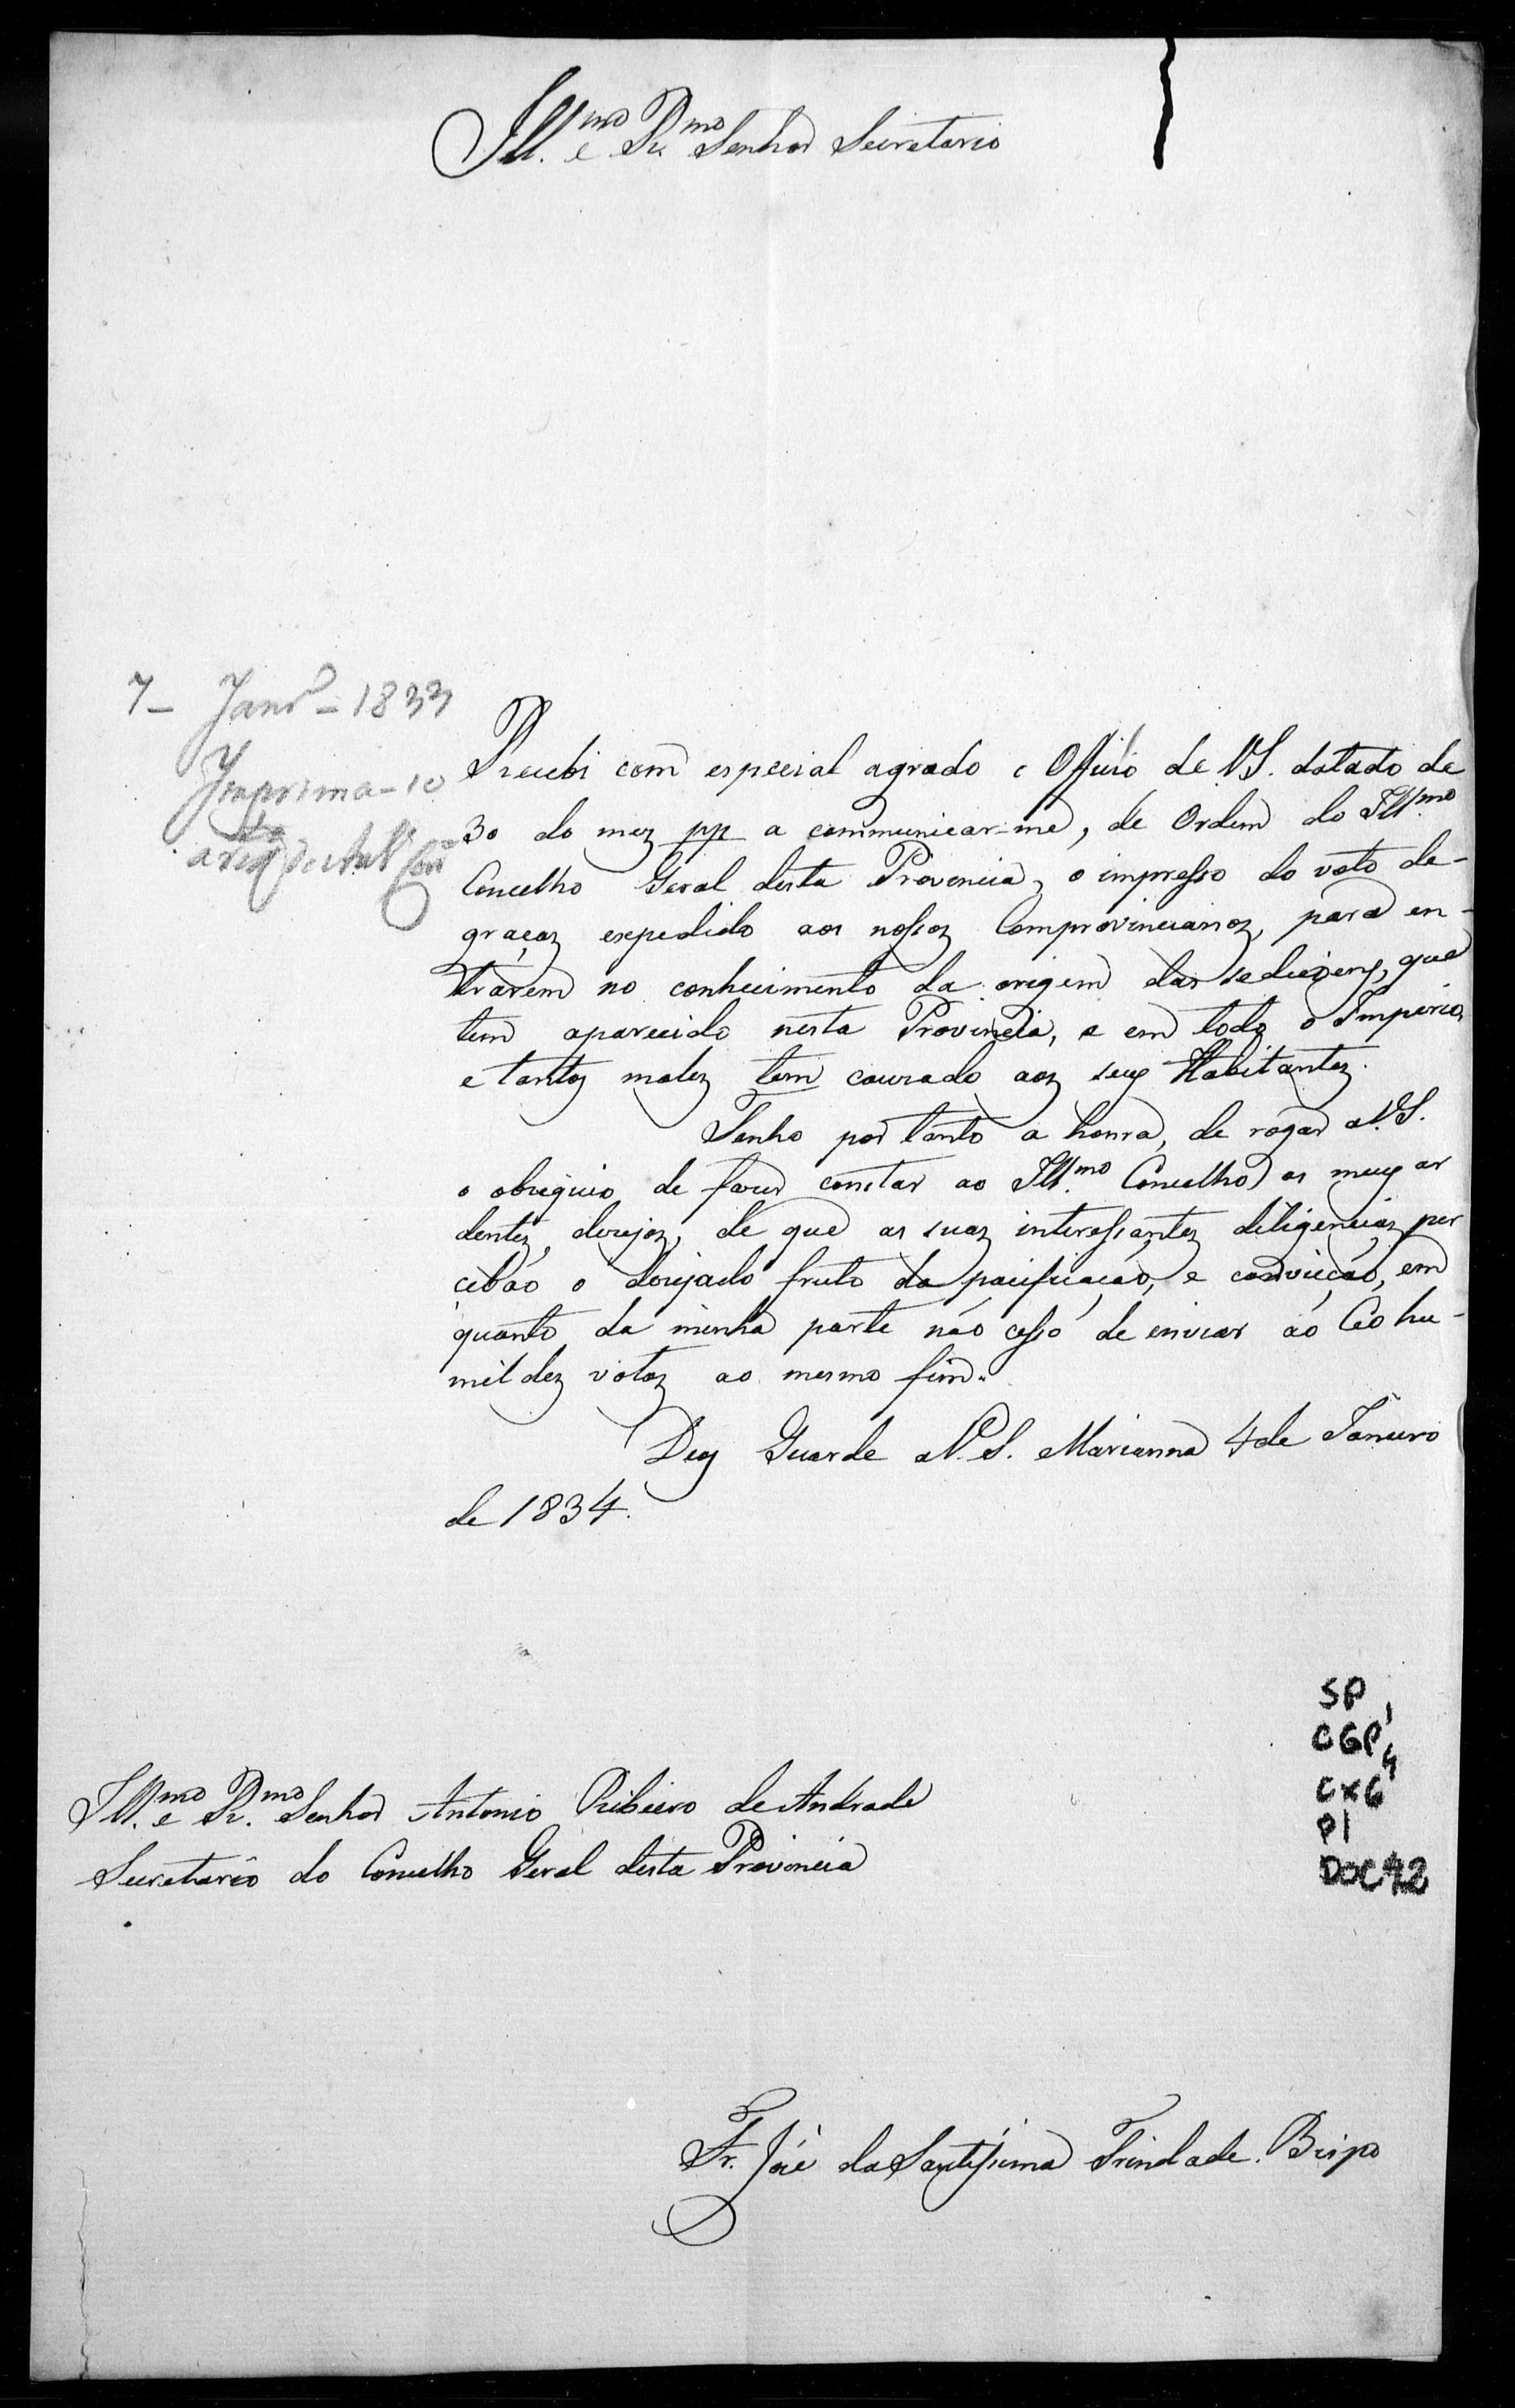 Ill.mo e R.mo Senhor Secretario
7 - Janr.o - 1833
Imprima-se
Recebi com especial agrado o Officio de V.S. datado de
30 do mez pp a communicar-me, de Ordem do Ill.mo
Concelho Geral desta Provencia, o impresso do voto de-
graças expedido aos nossos Comprovincianos, para en-
trárem no conhecimento da origem das sediçoens, que
tem aparecido nesta Provincia, e em todo o Imperio,
e tantos males tem cauzado aos seus Habitantes.
Tenho por tanto a honra, de rogar a V.S.
o obzequio de fazer constar ao Ill.mo Concelho os meus ar
dentes dezejos, de que as suas interessantes diligencias per
cebão o dezejado fruto da pacificação, e convicção, em
quanto da minha parte não cesso de enviar ao Ceo hu-
mildes votos ao mesmo fim.
Deos Guarde a V.S. Marianna 4 de Janeiro
de 1834.
SP
CGP 1
CX 6 4
P1
DOC 42
Ill.mo e R.mo Senhor Antonio Ribeiro de Andrade
Secretario do Concelho Geral desta Provincia
Fr. José da Santissima Trindade. Bispo